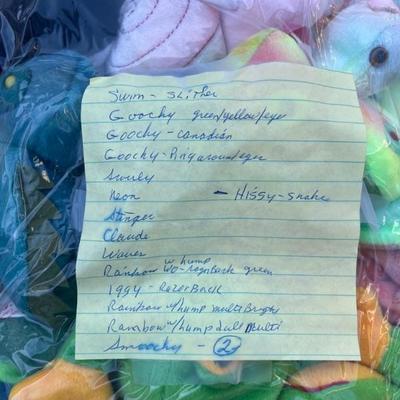 Swim - Slither
Goochy green/yellow/eyes
Goochy - Canadian
Goochy - Ring around eyes
Swirly
Neon - Hissy - snake
Stinger
Claude
Waves
Rainbow w hump
wo-razorback green
1994 - Razor Back
Rainbow w/hump multi Bright
Rainbow w/hump dull multi
Smoochy - 2